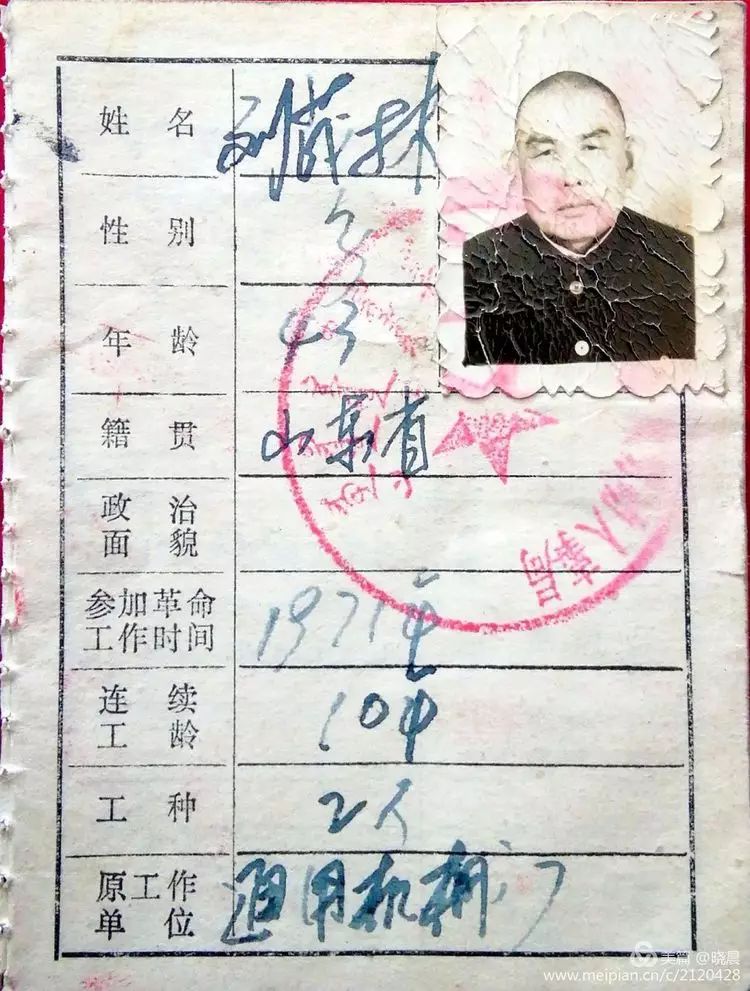 姓名 刘茂林
性别 男
年龄
籍贯 山东省
政治
面貌
参加革命
工作时间 1971年
连续
工龄 10年
工种 工人
原工作
单位 通用机械厂
人事局
美篇 @晓晨
www.meipian.cn/c/2120428